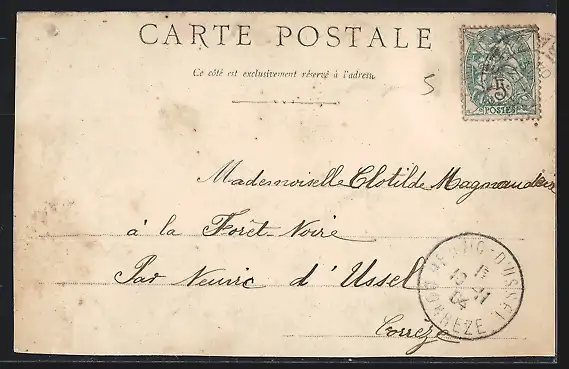 CARTE POSTALE
Ce côté est exclusivement réservé à l'adresse
5
5
POSTES
Mademoiselle Clotilde Magnaudeix
à la Forêt-Noire
Par Neuvic d'Ussel
Corrèze
NEUVIC-D'USSEL
15 -11
04
CORREZE